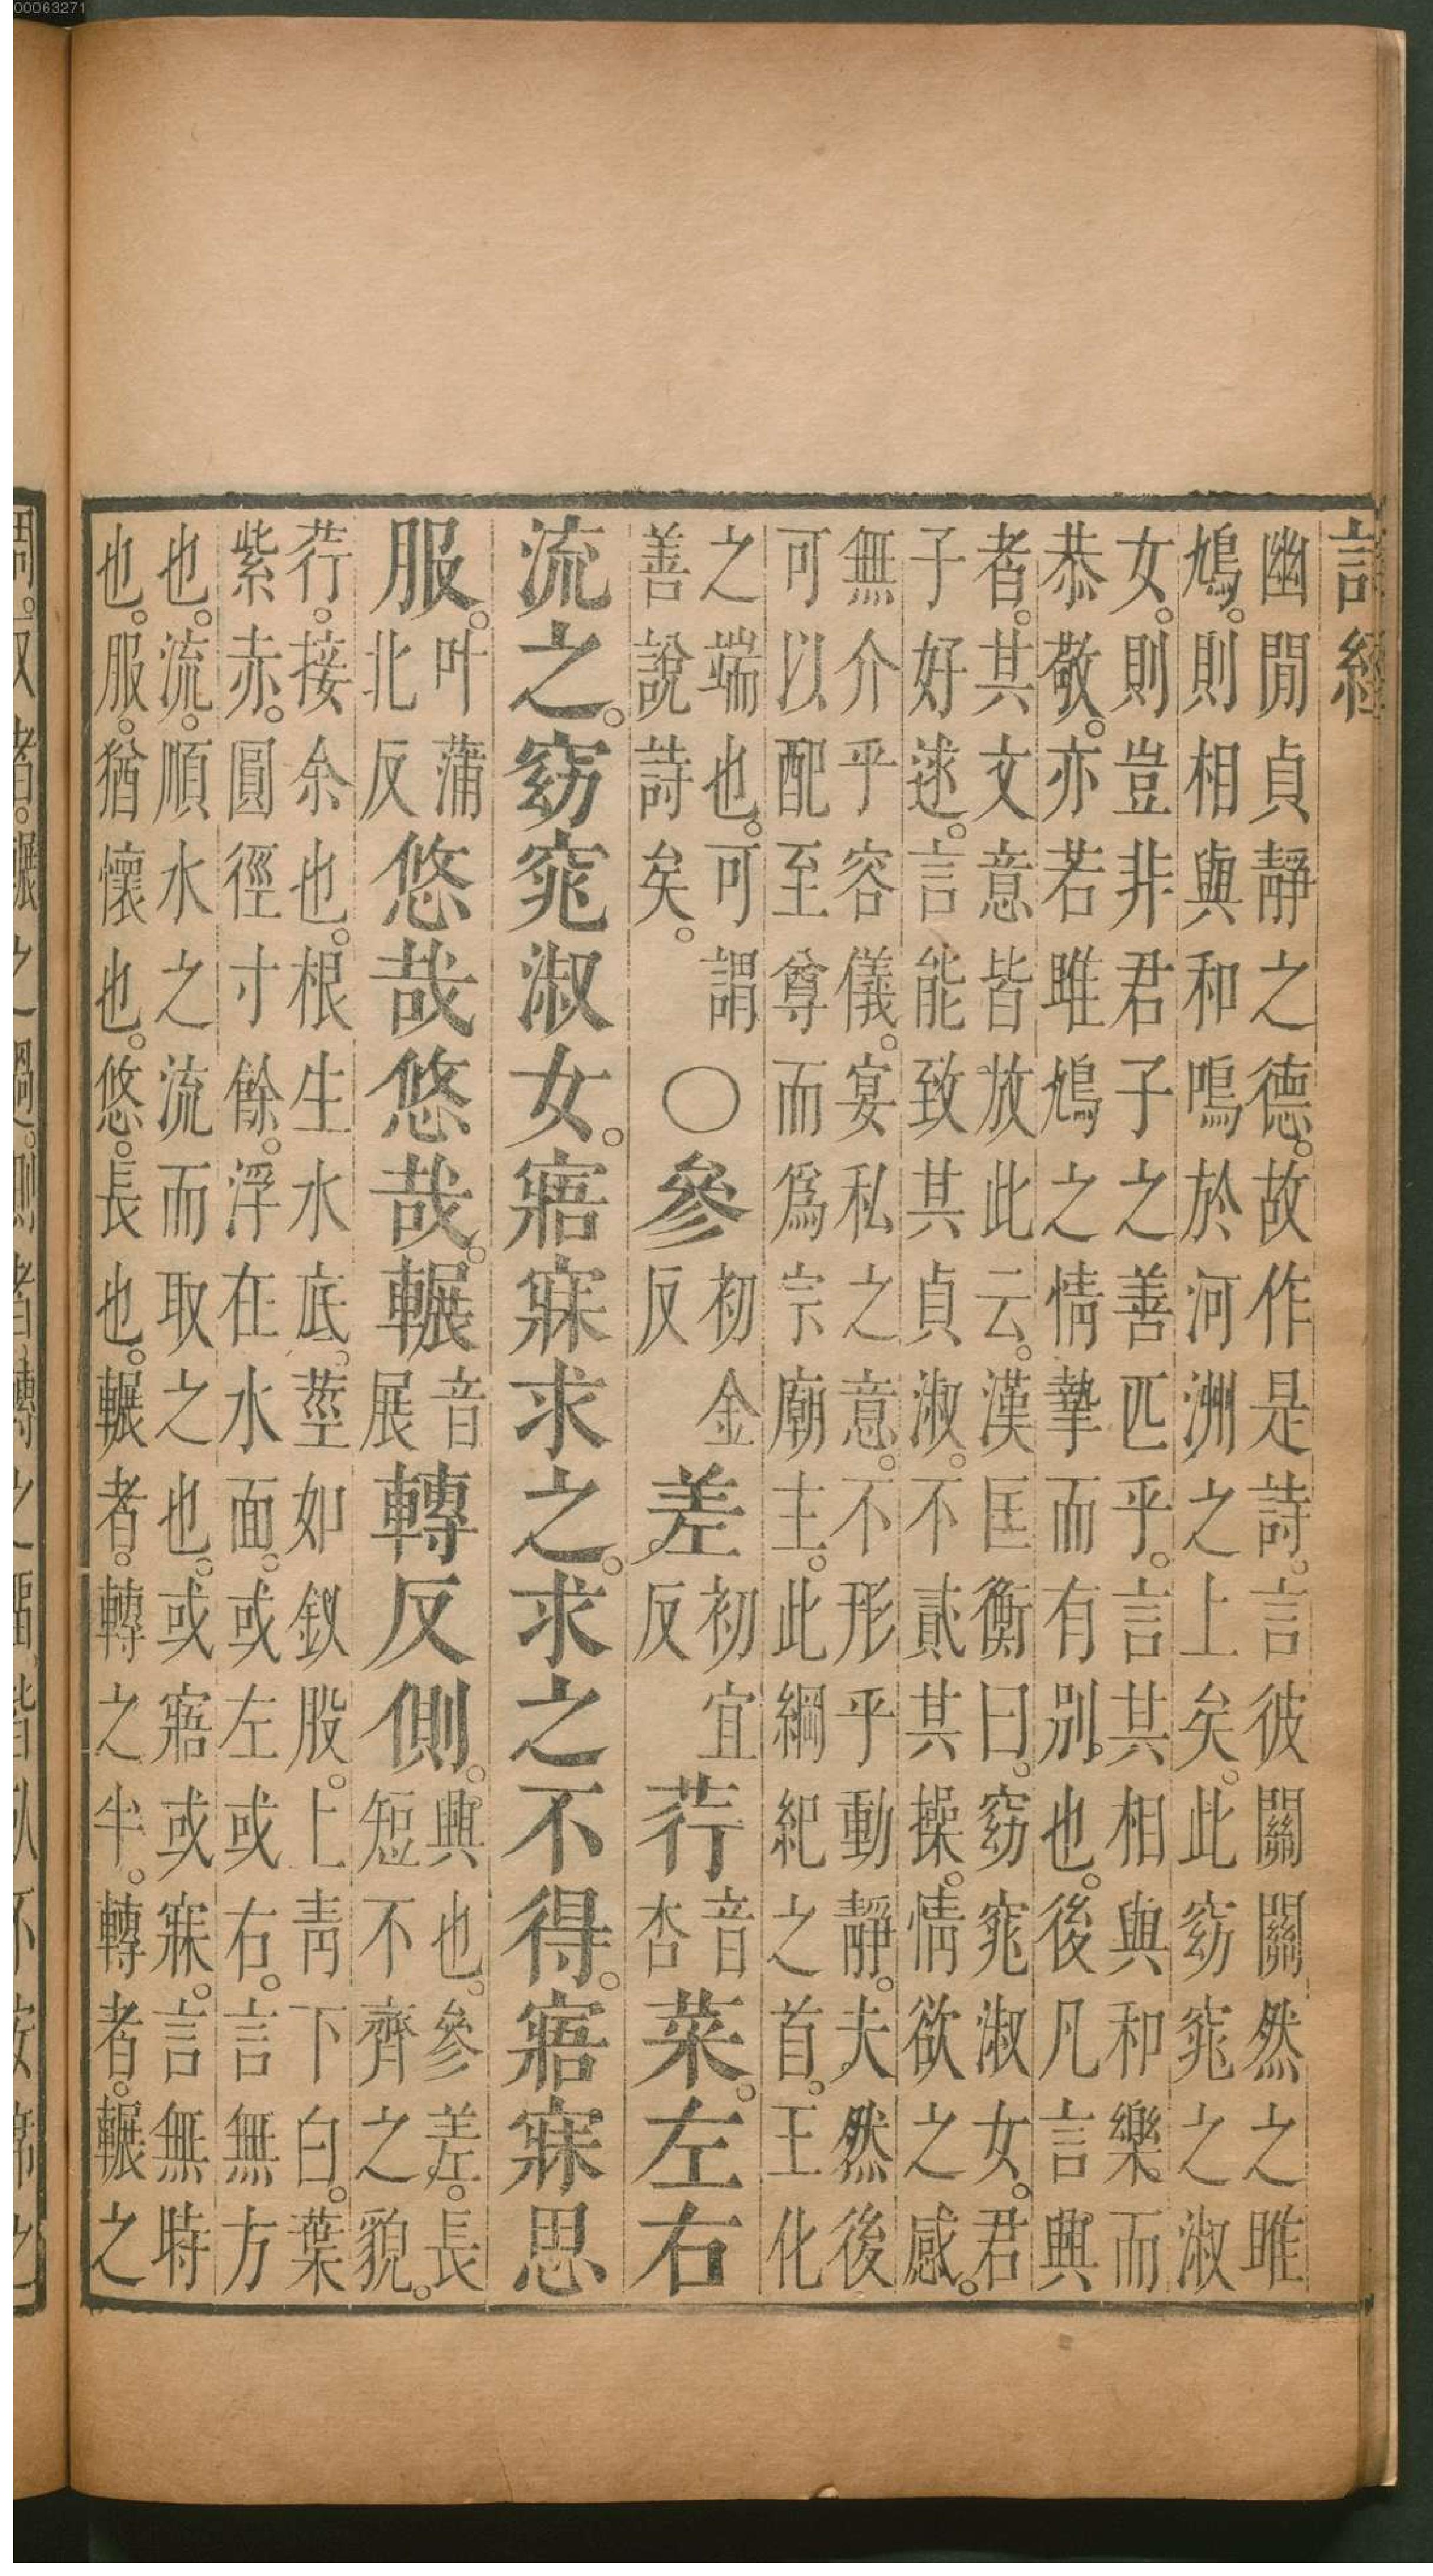 00063271
詩經
幽閒貞靜之德。故作是詩。言彼關關然之雎
鳩。則相與和鳴於河洲之上矣。此窈窕之淑
女。則豈非君子之善匹乎。言其相與和樂而
恭敬。亦若雎鳩之情摯而有別也。後凡言興
者。其文意皆放此云。漢匡衡曰。窈窕淑女。君
子好逑。言能致其貞淑。不貳其操。情欲之感。
無介乎容儀。宴私之意。不形乎動靜。夫然後
可以配至尊而爲宗廟主。此綱紀之首。王化
之端也。可謂
善說詩矣。
○參初金反差初宜反荇音杏菜。左右
流之。窈窕淑女。寤寐求之。求之不得。寤寐思
服。叶蒲北反悠哉悠哉。輾音展轉反側。興也。參差。長短不齊之貌。
荇。接余也。根生水底。莖如釵股。上靑下白。葉
紫赤。圓徑寸餘。浮在水面。或左或右。言無方
也。流。順水之流而取之也。或寤或寐。言無時
也。服。猶懷也。悠。長也。輾者。轉之半。轉者。輾之